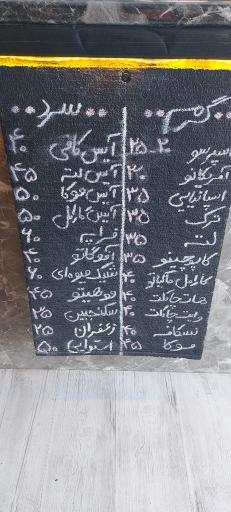 گرم
اسپرسو ۲۵ ۳۰
آمریکانو ۳۰
اسپانیایی ۳۵
ترک ۳۵
لته ۳۵
کاپوچینو ۳۵
کارامل ماکیاتو ۴۰
هات چاکلت ۴۰
وایت چاکلت ۴۰
نسکافه ۴۰
موکا ۴۵
سرد
آیس کافی ۴۰
آیس لته ۴۵
آیس موکا ۵۰
آیس کارامل ۵۰
فراپه ۶۰
آفوگاتو ۴۰
شیک میوه‌ای ۶۰
موهیتو ۴۵
سکنجبین ۲۵
زعفران ۲۵
استوایی ۵۰